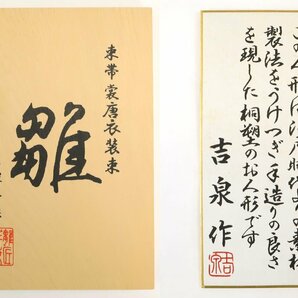 束帯裳唐衣装束
雛
この人形は江戸時代の素材
製法をうけつぎ手造りの良さ
を現した桐塑のお人形です
吉泉作
吉